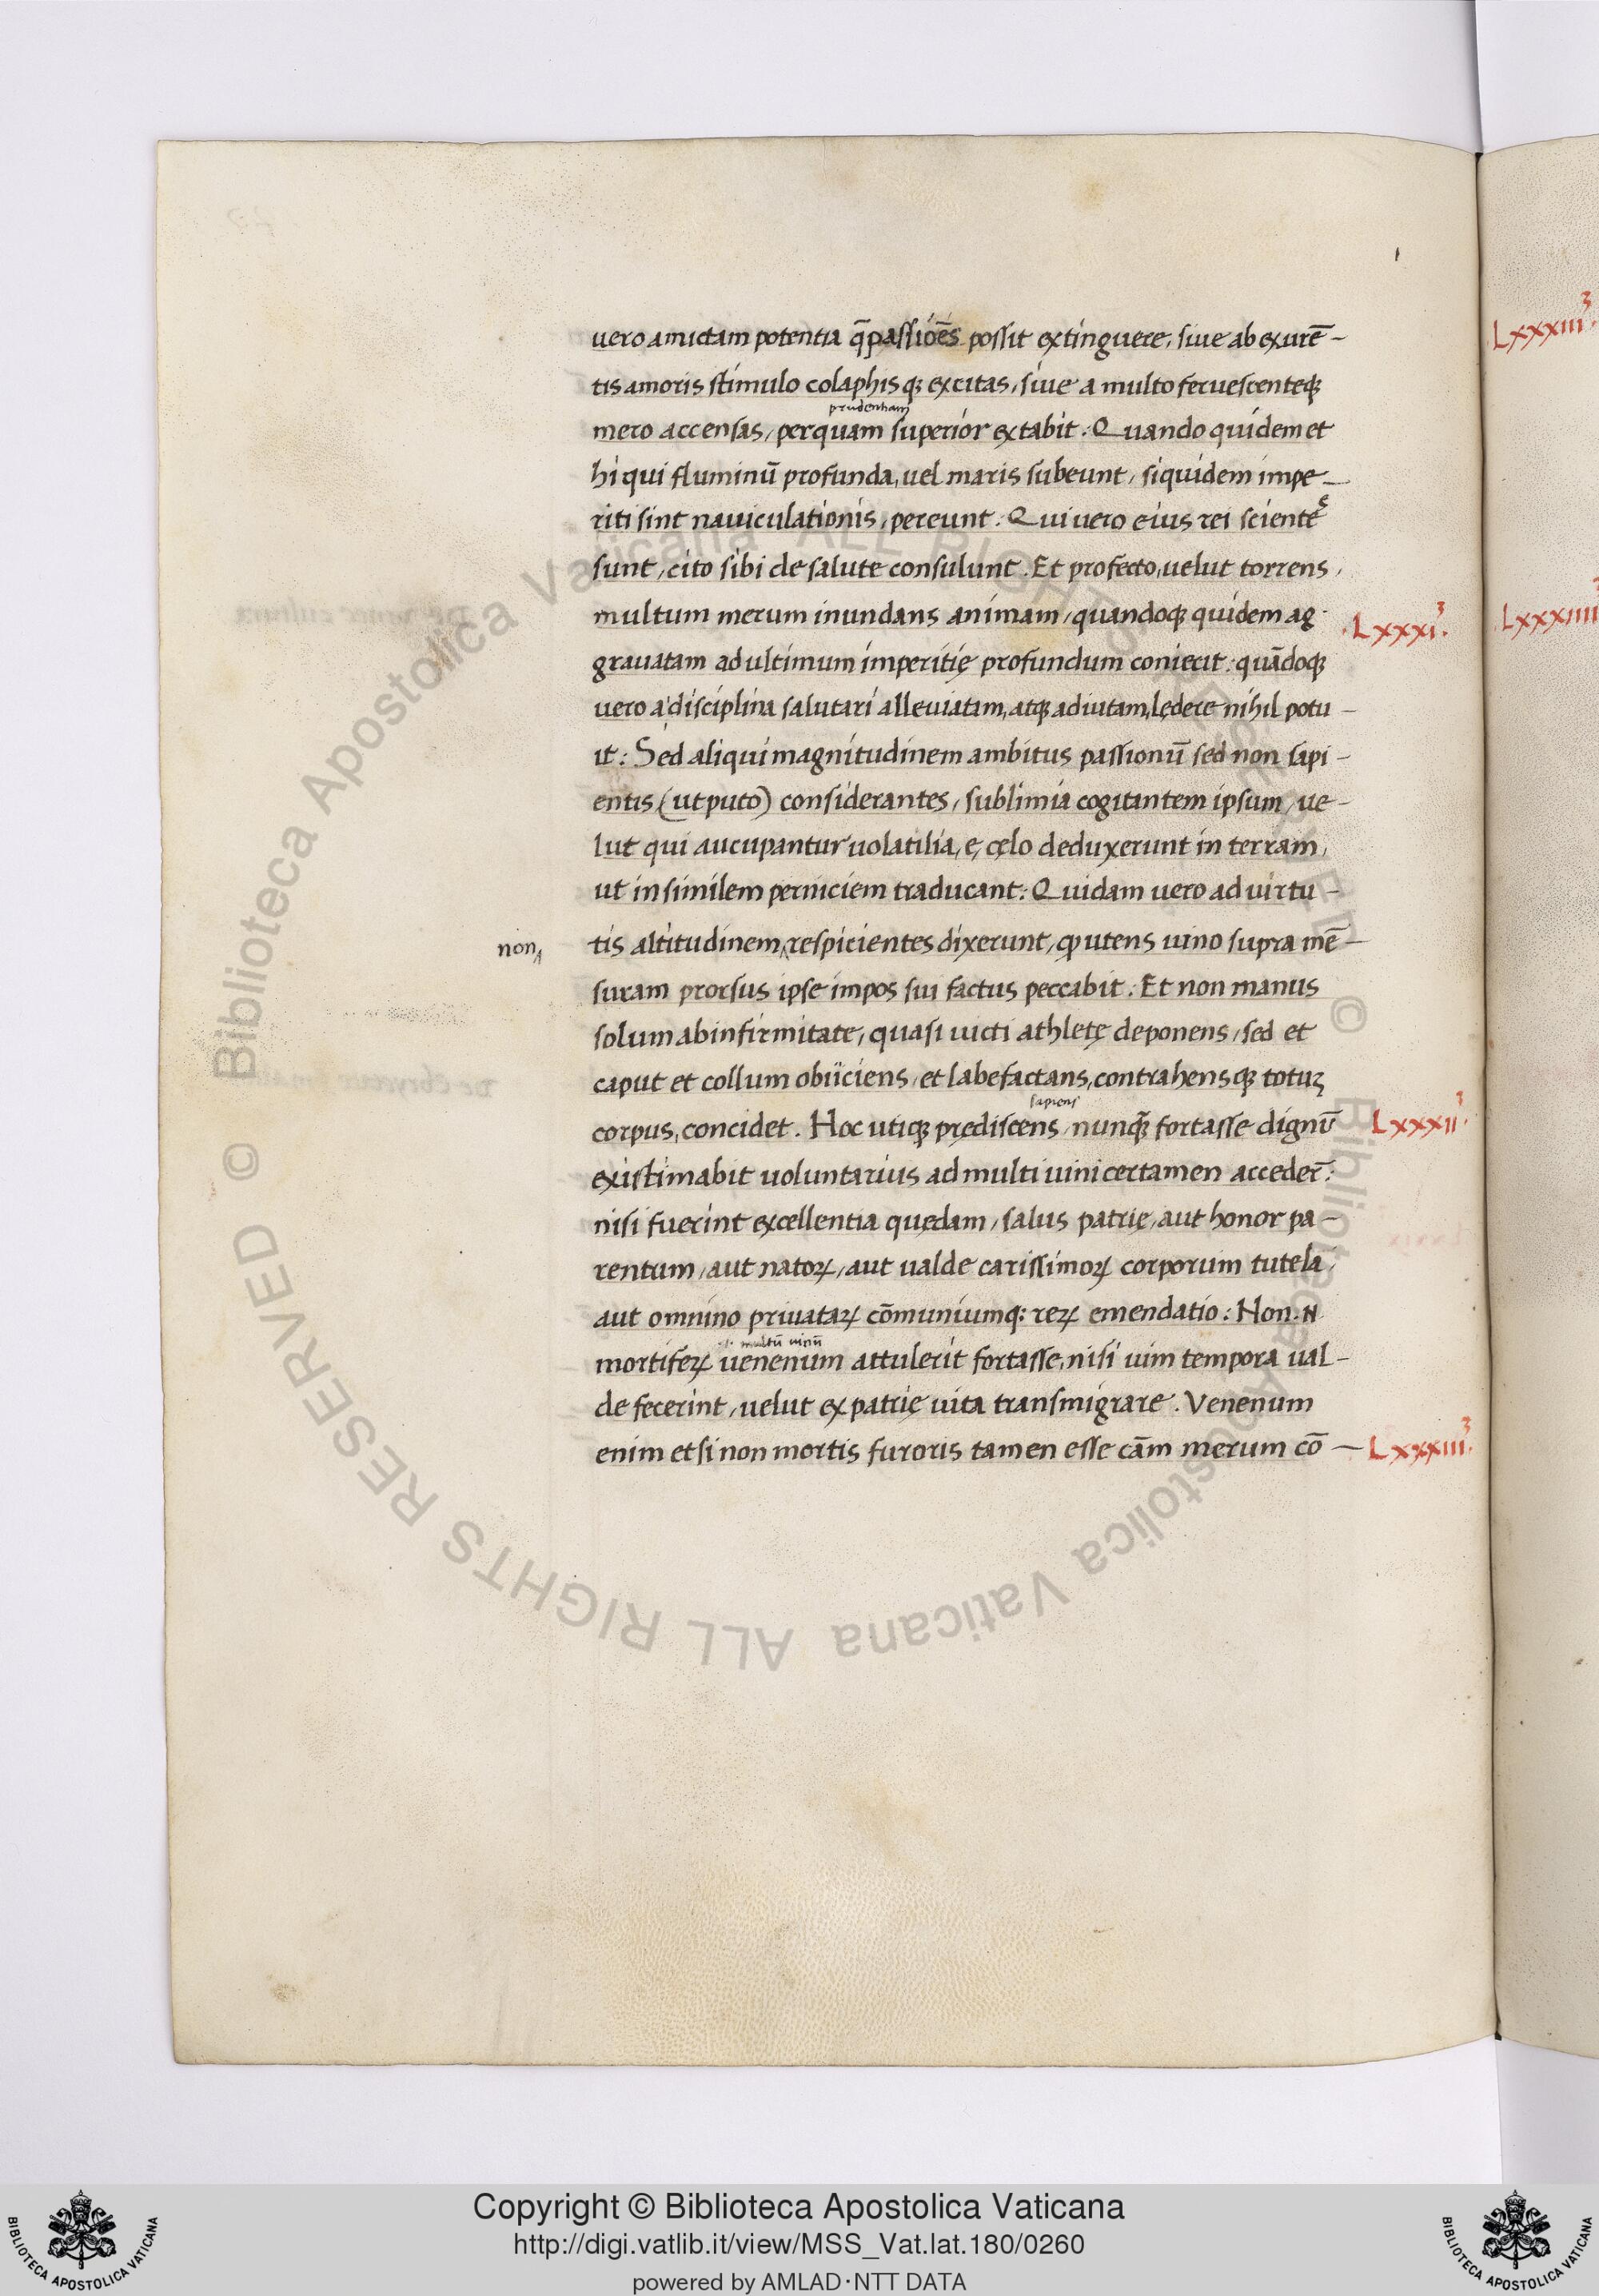 uero amictam potentia q̄ passiōēs possit extinguere, siue ab exurē-
tis amoris stimulo colaphisqꝫ excitas, siue a multo feruescenteqꝫ
prudentiam
mero accensas, perquam superior extabit. Quando quidem et
hi qui fluminū profunda, uel maris subeunt, siquidem impe-
riti sint nauiculationis, pereunt. Qui uero eius rei sciente
sunt, cito sibi de salute consulunt. Et profecto, uelut torrens,
multum merum inundans animam, quandoqꝫ quidem ag- .Lxxxi.³
grauatam ad ultimum imperitię profundum coniecit: quādoqꝫ
uero a disciplina salutari alleuiatam, atqꝫ adiutam, lędere nihil potu-
it: Sed aliqui magnitudinem ambitus passionū sed non sapi-
entis (ut puto) considerantes, sublimia cogitantem ipsum, ue-
lut qui aucupantur uolatilia, e, cęlo deduxerunt in terram,
ut in similem perniciem traducant: Quidam uero ad uirtu-
non tis altitudinem, respicientes dixerunt, ꝙ utens uino supra mē-
suram prorsus ipse impos sui factus peccabit. Et non manus
solum ab infirmitate, quasi uicti athletę deponens, sed et
caput et collum obiiciens, et labefactans, contrahensqꝫ totuꝫ
sapiens
corpus, concidet. Hoc utiqꝫ prędiscens, nunqꝫ̄ fortasse dignū Lxxxii.³
existimabit uoluntarius ad multi uini certamen accedeꝛ̄:
nisi fuerint excellentia quędam, salus patrię, aut honor pa-
rentum, aut natoꝝ, aut ualde carissimoꝝ corporum tutela,
aut omnino priuataꝝ cōmuniumq: reꝝ emendatio: Non. N
multū uinū
mortifeꝝ uenenum attulerit fortasse, nisi uim tempora ual-
de fecerint, uelut ex patrię uita transmigrare. Venenum
enim et si non mortis furoris tamen esse cām merum cō- Lxxxiii.³
Lxxxiii.³
Lxxxiiii
© Biblioteca Apostolica Vaticana ALL RIGHTS RESERVED © Biblioteca Apostolica Vaticana ALL RIGHTS RESERVED
Copyright © Biblioteca Apostolica Vaticana
http://digi.vatlib.it/view/MSS_Vat.lat.180/0260
powered by AMLAD·NTT DATA
BIBLIOTECA APOSTOLICA VATICANA
BIBLIOTECA APOSTOLICA VATICANA